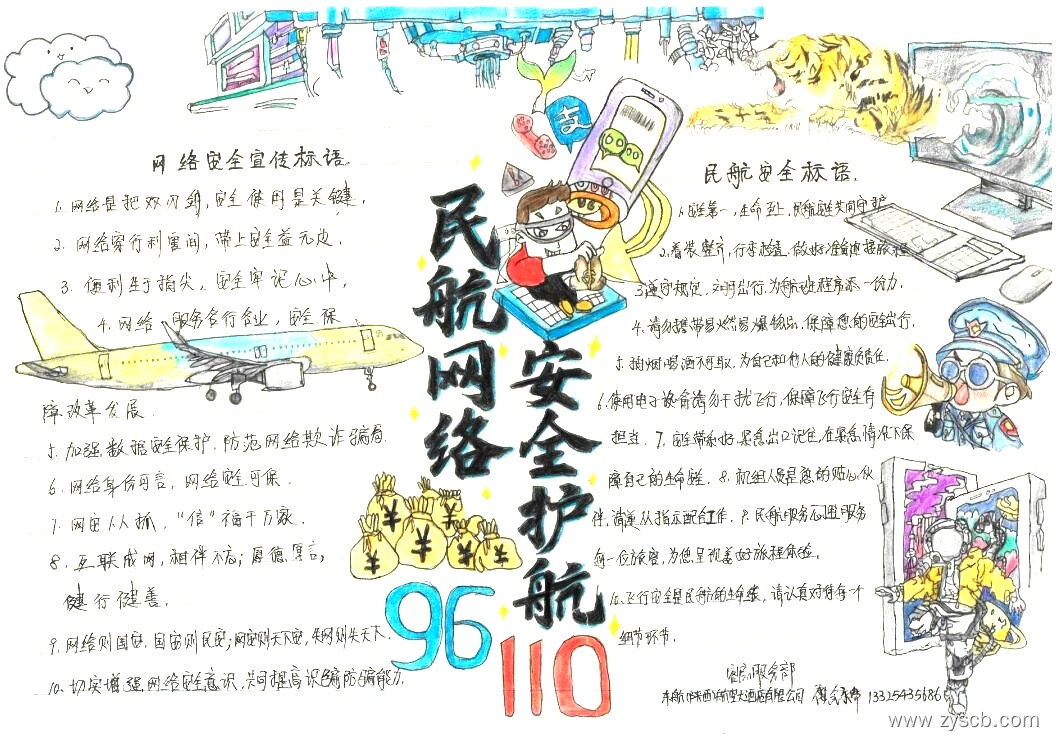 网络安全宣传标语.
1. 网络是把双刃剑, 安全使用是关键.
2. 网络穿行利害间, 带上安全益无边.
3. 便利生于指尖, 安全牢记心中.
4. 网络 服务各行各业, 安全 保
障改革发展.
5. 加强数据安全保护, 防范网络欺诈骗局.
6. 网络身份可信, 网络安全可保.
7. 网安人人抓, "信"福千万家.
8. 互联成网, 相伴不忘; 厚德
健行健善.
9. 网络则国安, 国安则民安; 网安则天下安, 失网则失天下.
10. 切实增强网络安全意识, 共同提高识骗防骗能力.
民航网络
安全护航
支
¥
¥
¥
¥
¥
96
110
民航安全标语.
1. 安全第一, 生命至上, 民航安全共同守护
2. 着装整齐, 行李检查, 做好准备迎接旅程
3. 遵守规定, 文明出行, 为航班程序添一份力.
4. 请勿携带易燃易爆物品, 保障您的安全出行.
5. 抽烟喝酒不可取, 为自己和他人的健康负责任.
6. 使用电子设备请勿干扰飞行, 保障飞行安全有
担当. 7. 安全带系好, 紧急出口记住, 在紧急情况下保
障自己的生命安全. 8. 机组人员是您的贴心伙
伴, 请听从指示配合工作. 9. 民航服务
每一位旅客, 为您呈现美好旅程体验.
10. 飞行安全是民航的生命线, 请认真对待每个
细节环节.
客房服务部
大酒店有限公司
www.zyscb.com